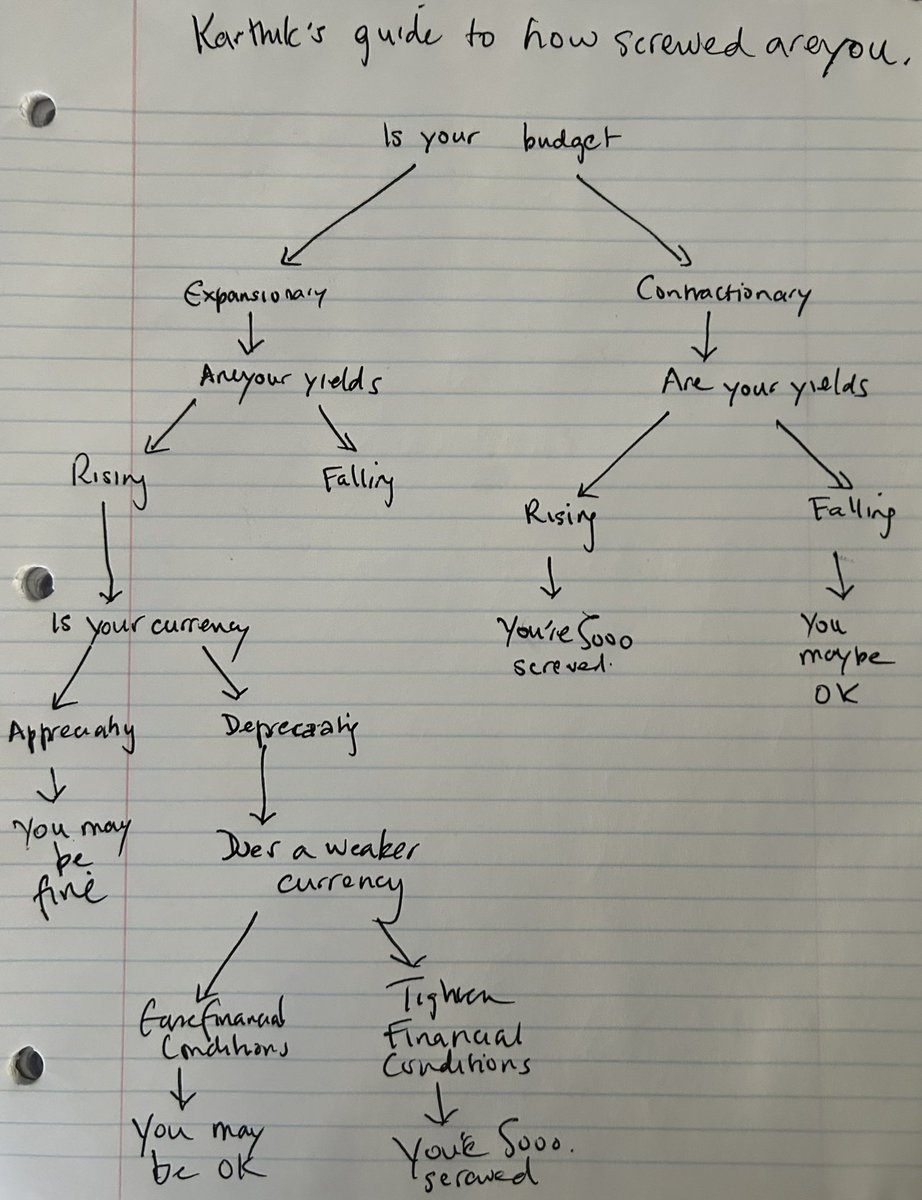 Karthik's guide to how screwed are you.
Is your budget
Expansionary
Contractionary
Are your yields
Are your yields
Rising
Falling
Rising
Falling
Is your currency
You're Sooo
screwed.
You
maybe
OK
Appreciating
Depreciating
You may
be
fine
Does a weaker
currency
Ease financial
Conditions
Tighten
Financial
Conditions
You may
be OK
You're Sooo.
screwed